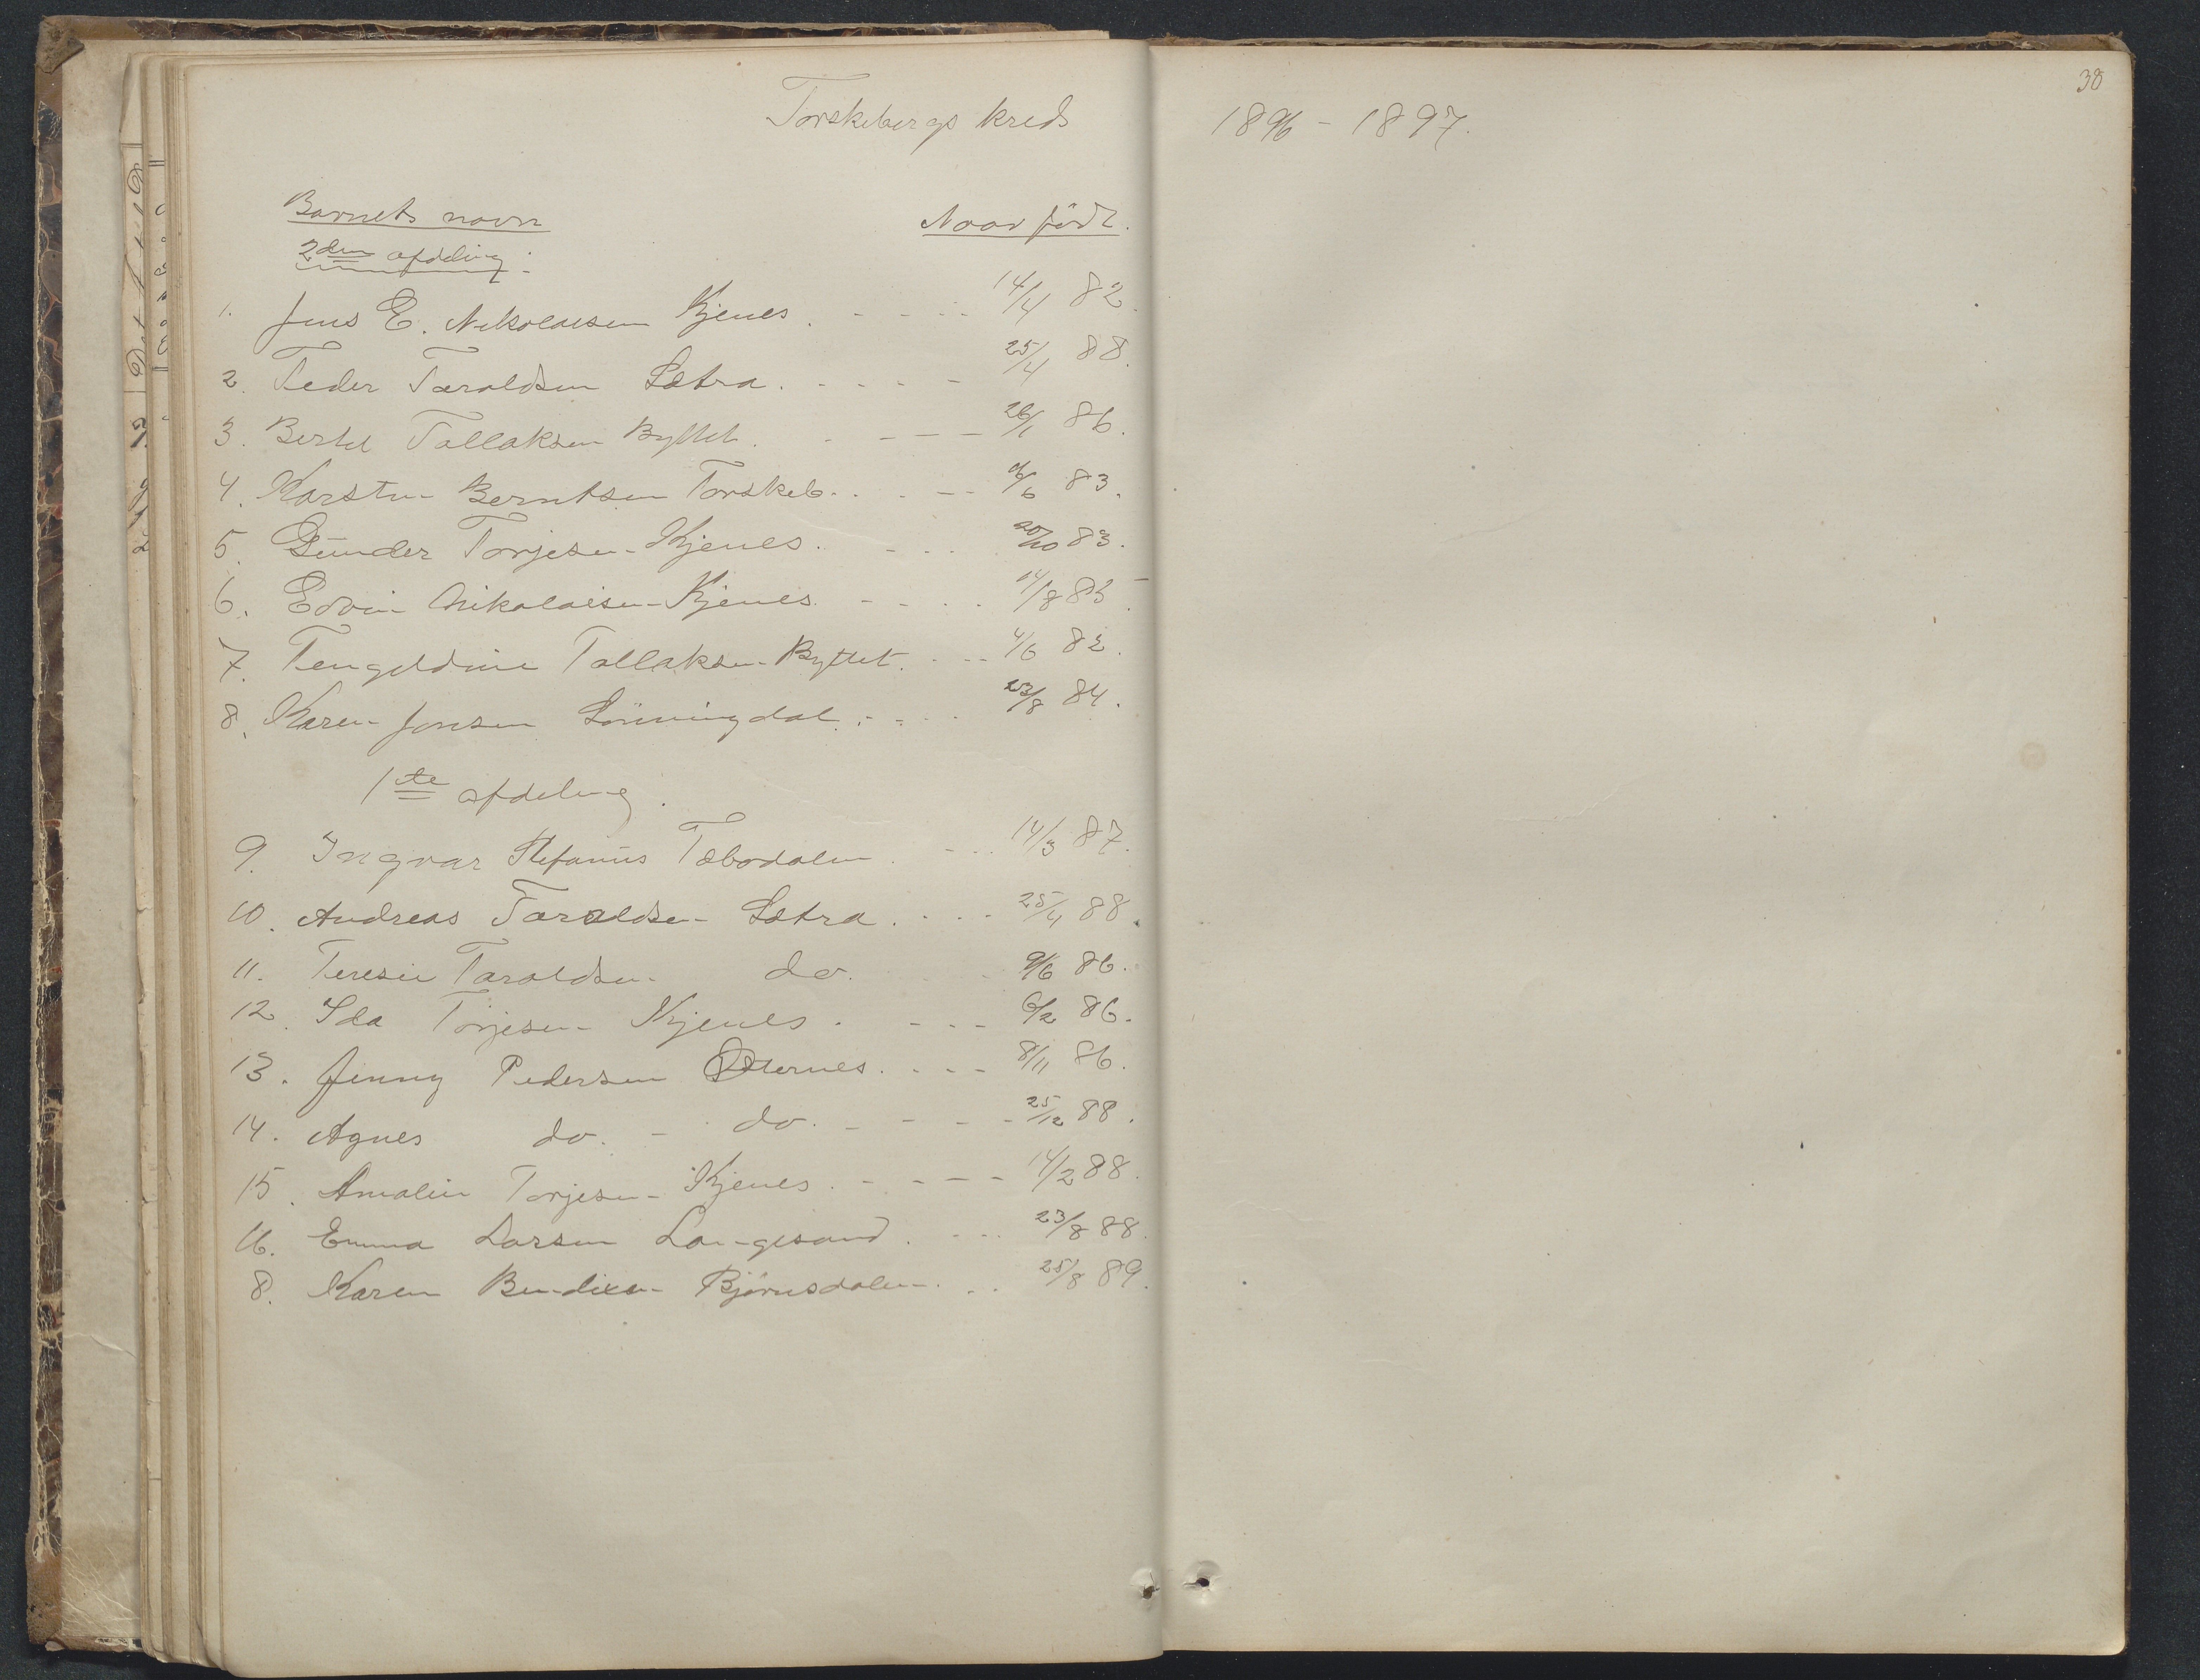 Torskebergs kreds
1896 - 1897.
38
Barnets navn
Naar født.
2den afdeling.
1. Jens E. Nikolaisen Kjenes. - - - - 14/4 82.
2. Peder Taraldsen Sætra. - - - - 25/4 88.
3. Bertel Tallaksen Byttet. - - - - 26/1 86.
4. Karsten Berntsen Torskeb. . - - - 83.
5. Gunder Torjesen Kjenes. - - - 20/10 83.
6. Edvin Nikolaisen Kjenes. - - - 14/8 85.
7. Tengeldine Tallaksen Byttet. - - - 4/6 82.
8. Karen Jensen Lønningdal. - - - 23/8 84.
1te afdeling.
9. Ingvar Stefanus Tæbodalen. - - - 14/3 87.
10. Andreas Taraldsen Sætra. - - - 25/4 88.
11. Teresie Taraldsen do. 9/6 86.
12. Ida Torjesen Kjenes. - - - 6/2 86.
13. Jenny Pedersen Østernes. - - - 8/11 86.
14. Agnes do. - do. - - - - 25/12 88.
15. Amalie Torjesen Kjenes. - - - - 14/2 88.
16. Emma Larsen Langesand. - - - 23/8 88.
8. Karen Bendixen Bjørnsdalen. . . 25/8 89.